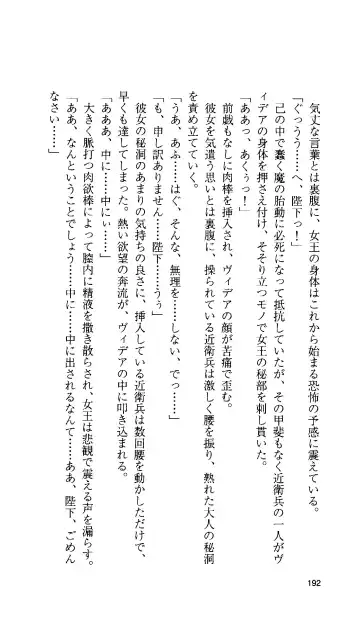 気丈な言葉とは裏腹に、女王の身体はこれから始まる恐怖の予感に震えている。
「ぐっうう……へ、陛下っ！」
己の中で蠢く魔の胎動に必死になって抵抗していたが、その甲斐もなく近衛兵の一人がヴ
ィデアの身体を押さえ付け、そそり立つモノで女王の秘部を刺し貫いた。
「ああっ、あくぅっ！」
前戯もなしに肉棒を挿入され、ヴィデアの顔が苦痛で歪む。
彼女を気遣う思いとは裏腹に、操られている近衛兵は激しく腰を振り、熟れた大人の秘洞
を責め立てていく。
「うあ、あふ……はぐ、そんな、無理を……しない、でっ……」
「も、申し訳ありません……陛下……うぅ」
彼女の秘洞のあまりの気持ちの良さに、挿入している近衛兵は数回腰を動かしただけで、
早くも達してしまった。熱い欲望の奔流が、ヴィデアの中に叩き込まれる。
「あああ、中に……中にぃ……」
大きく脈打つ肉欲棒によって膣内に精液を撒き散らされ、女王は悲観で震える声を漏らす。
「ああ、なんということでしょう……中に……中に出されるなんて……ああ、陛下、ごめん
なさい……」
192